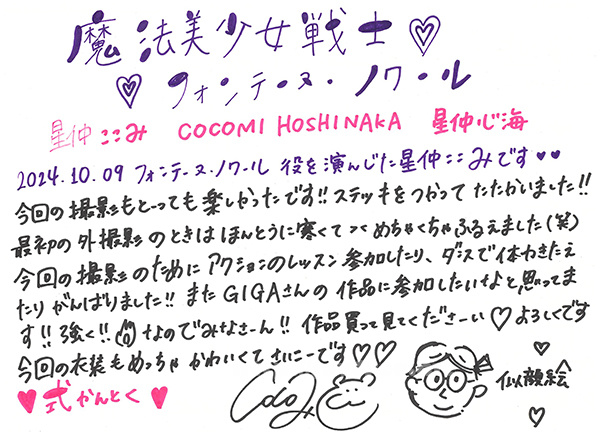 魔法美少女戦士♡
♡フォンテーヌ・ノワール
星仲ここみ COCOMI HOSHINAKA 星仲心海
2024.10.09 フォンテーヌ・ノワール 役を演んじた星仲ここみです♥♥
今回の撮影もとーっても楽しかったです!!ステッキをつかってたたかいました!!
最初の外撮影のときはほんとうに寒くて めちゃくちゃふるえました(笑)
今回の撮影のためにアクションのレッスン参加したり、ダンスで体力きたえ
たりがんばりました!! またGIGAさんの作品に参加したいなと思ってま
す!!強く!! なのでみなさーん!! 作品買って見てくださーい♡よろしくです
今回の衣装もめっちゃかわいくてさいこーです♡♡
♥式かんとく♥
Cocomi
似顔絵